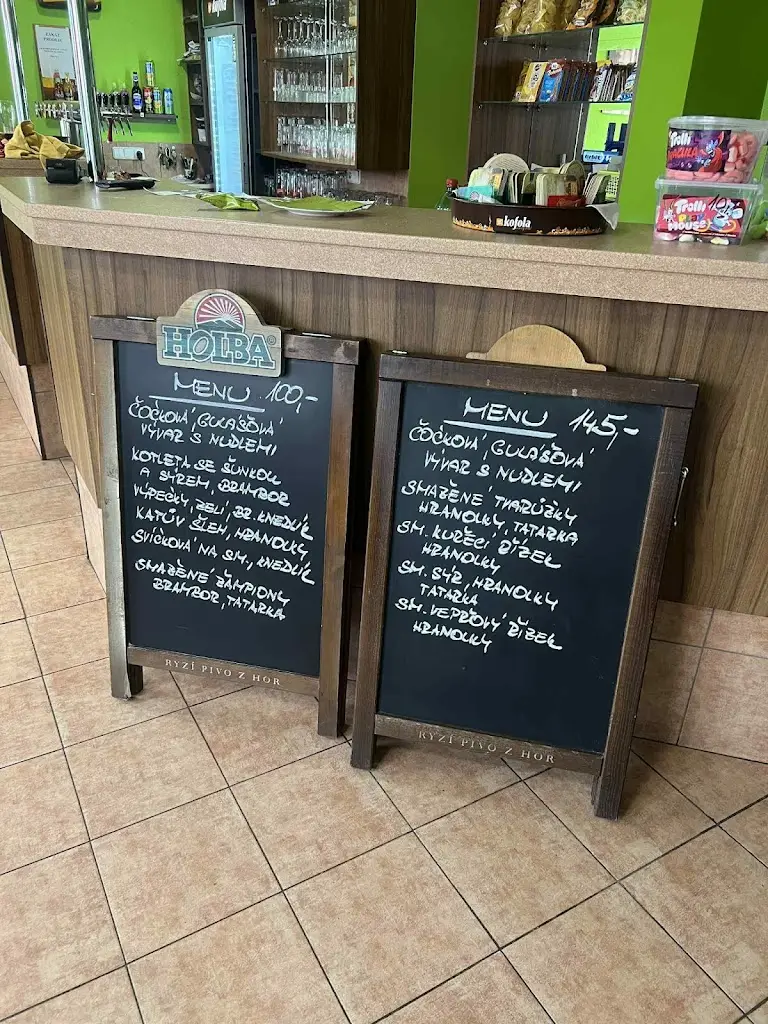 kofola
Trolli
Trolli
HOLBA
MENU 100,-
ČOČKOVÁ, GULÁŠOVÁ
VÝVAR S NUDLEMI
KOTLETA SE ŠUNKOU
A SÝREM, BRAMBOR
VÝPEČKY, ZELÍ, BR. KNEDLÍK
KATŮV ŠLEH, HRANOLKY
SVÍČKOVÁ NA SM., KNEDLÍK
SMAŽENÉ ŽAMPIONY
BRAMBOR, TATARKA
RYZÍ PIVO Z HOR
MENU 145,-
ČOČKOVÁ, GULÁŠOVÁ
VÝVAR S NUDLEMI
SMAŽENÉ TVARŮŽKY
HRANOLKY, TATARKA
SM. KUŘECÍ ŘÍZEK
HRANOLKY
SM. SÝR, HRANOLKY
TATARKA
SM. VEPŘOVÝ ŘÍZEK
HRANOLKY
RYZÍ PIVO Z HOR